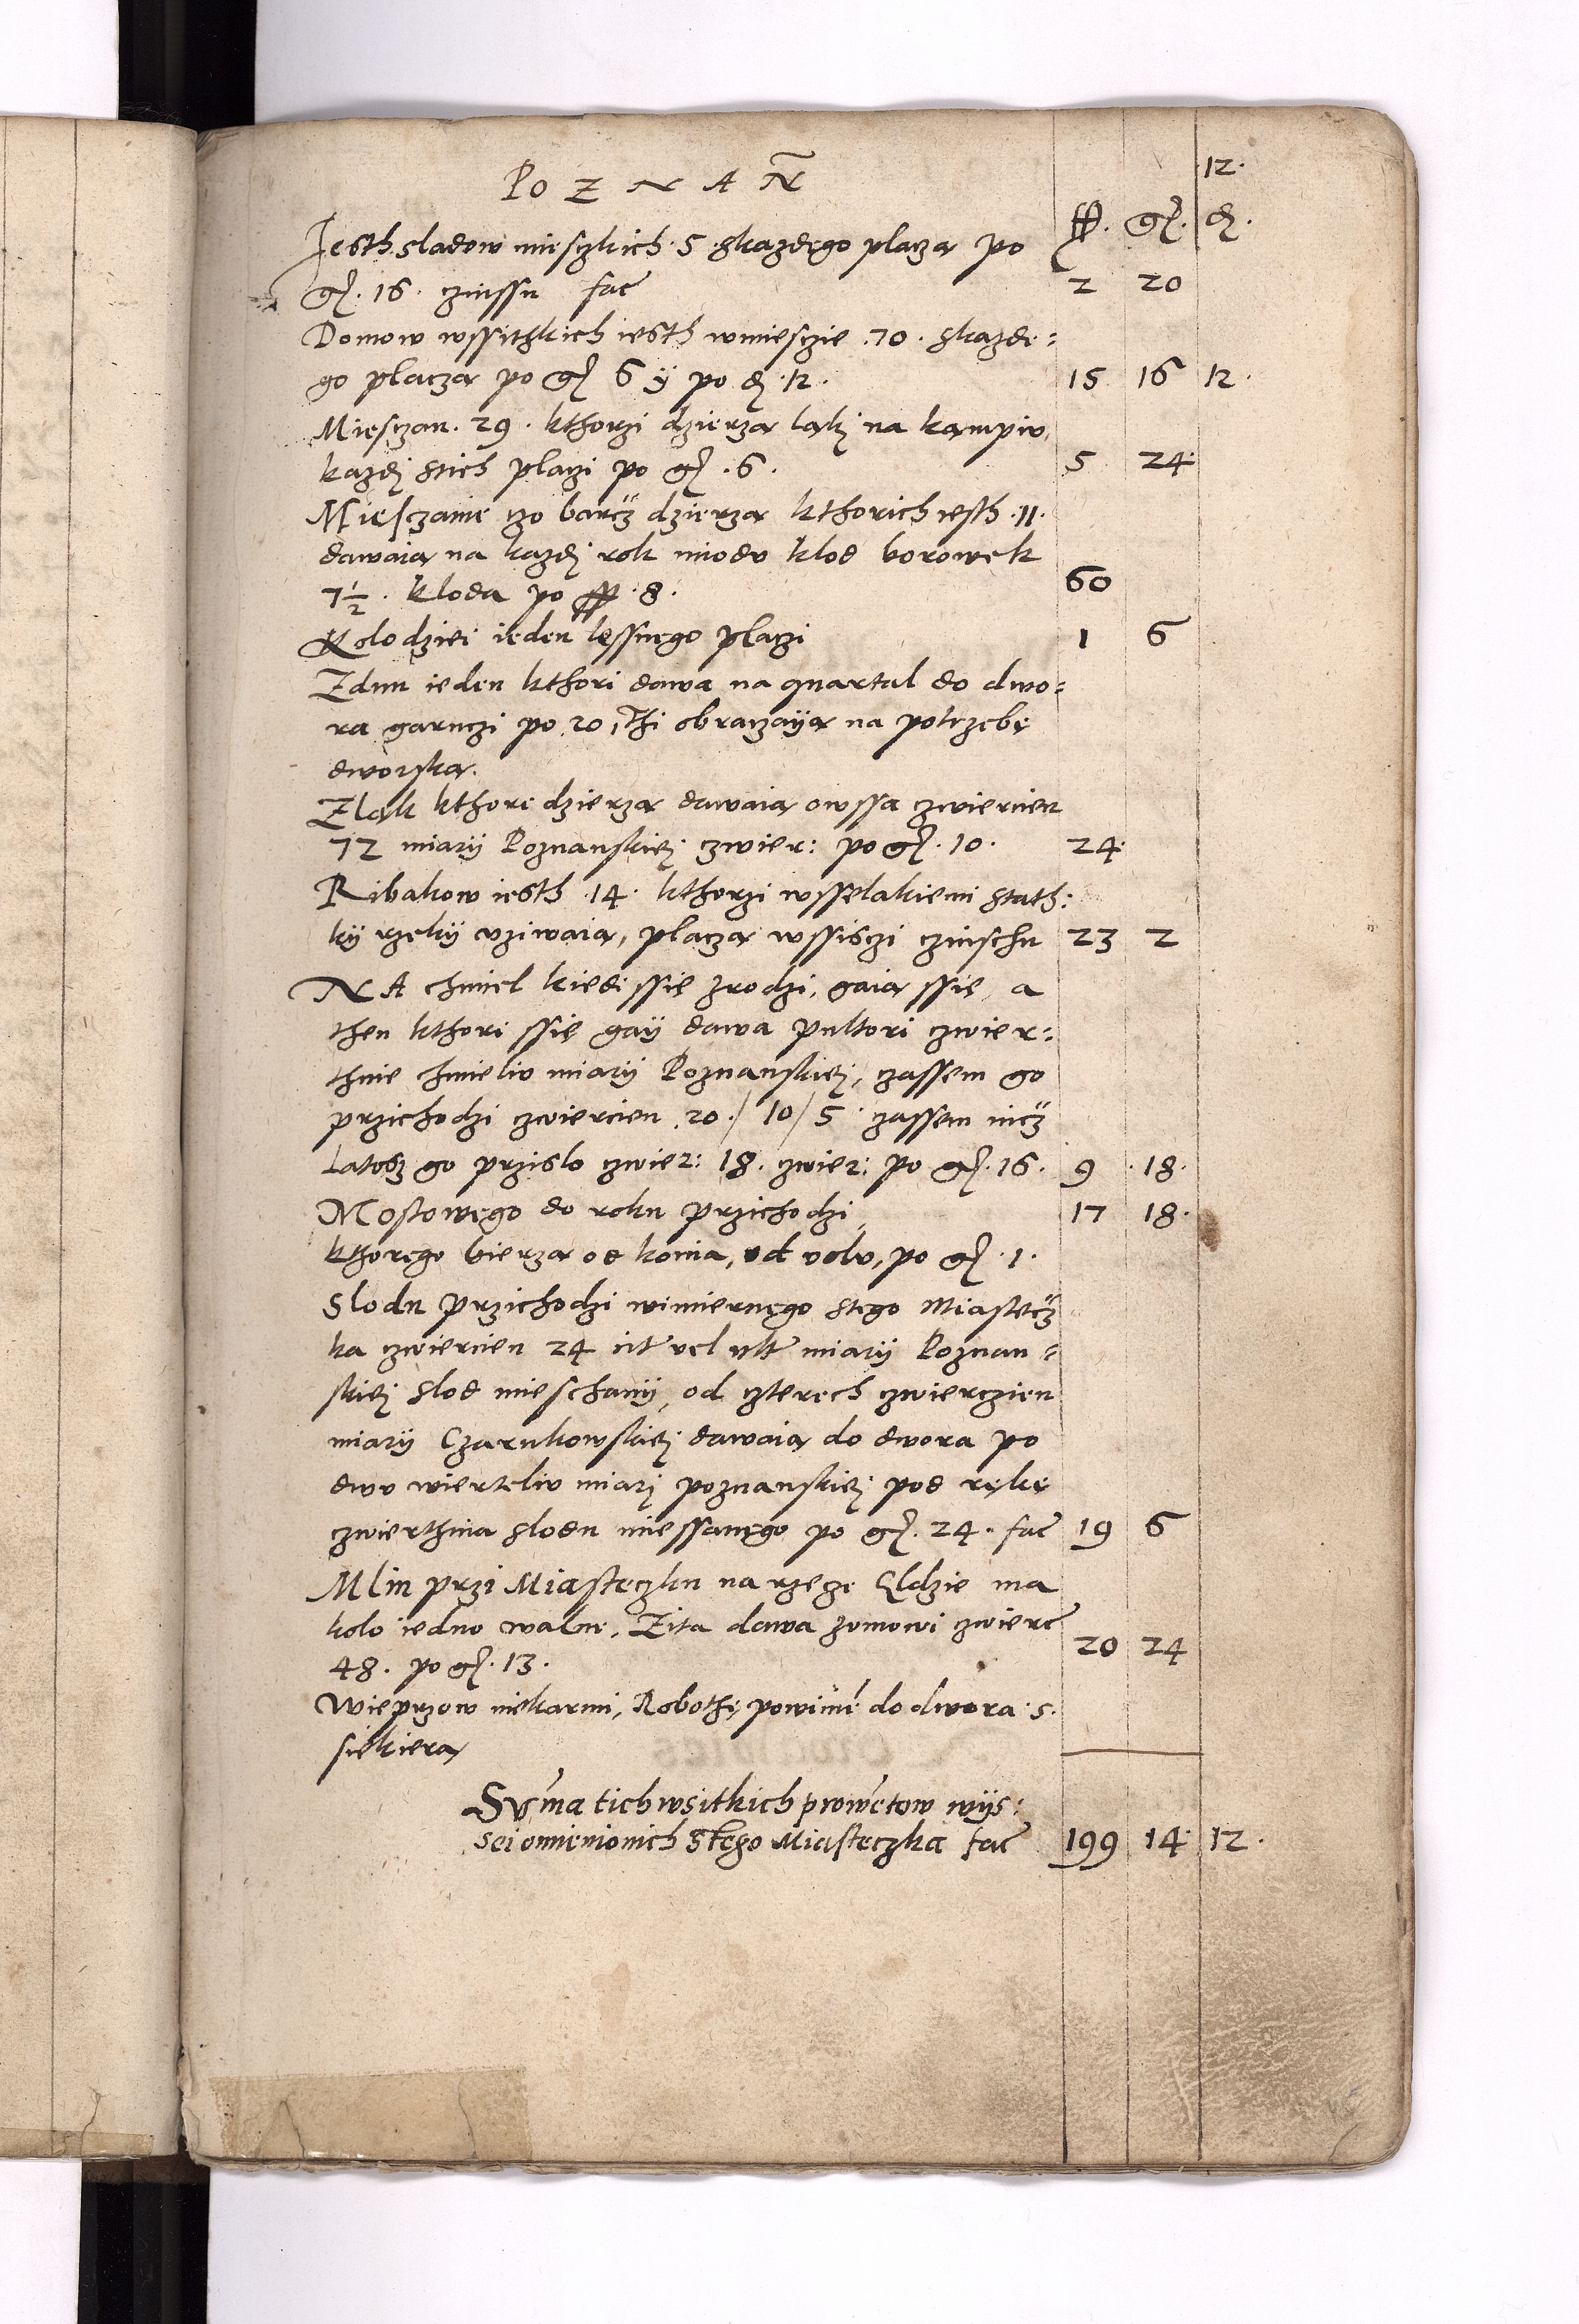 12.
POZNAN̄
ff. gɼ. δ.
Iesth sladow miesczkich 5 skazdego placza po
gɼ. 16. czinssu fac̄ 2 20
Domow wssitzkich iesth wmiesczie .70. skazde:
go placza po gɼ 6 ÿ po δ .12. 15 16 12.
Miesczan .29. kthorzi dzierza laki na kampiv,
kazdi stich placzi po gɼ .6. 5 24.
Miesczanie czo barcz dzierza kthorich iesth .11.
dawaia na kazdi rok miodv klod borowek
7½. kloda po ff .8. 60
Kolodziei ieden lessnego placzi 1 6
Zdun ieden kthori dawa na quartal do dwo:
ra garnczi po 20, thi obraczaÿa na potrzebę
dworska.
Zląk kthore dzierza dawaia owssa czwiercien
72 miarÿ Poznanskieÿ czwier: po gɼ .10. 24.
Ribakow iesth .14. kthorzi wsselakiemi stath:
kÿ rzekÿ vziwaia, placza wssisczi czinschu 23 2
NA chmiel kiedi ssię zrodzi, gaia ssię, a
then kthori ssię gaÿ dawa pultori czwier:
thnie chmieliv miarÿ Poznanskieÿ, czassem go
przichodzi czwiercien .20./ 10/ 5. czassem nicz
Latosz go przislo czwier: 18. czwier: po gɼ .16. 9 .18.
Mostowego do roku przichodzi, 17 18.
kthorego bierza od konia, od volv, po gɼ .1.
Slodu przichodzi wimiernego stego Miastecz
ka czwiercien 24 cit vel vlt miarÿ Poznan:
skieÿ slod mieschanÿ, od czterech czwierczien
miarÿ Czarnkowskieÿ dawaia do dwora po
dwv wierteliv miarÿ poznanskieÿ pod rękę
czwierthnia slodu miessanego po gɼ. 24. fac̄ 19 6
Mlin przi Miasteczku na rzecze Gldzie ma
kolo iedno walne, Zita dawa zomowi czwierc̄
48. po gɼ. 13. 20 24
Wieprzow niekarmi, Robothę powinē do dwora s.
siekiera
Sum̄a tich wsitkich prowētow wÿs:
sei omienionich Stego Miasteczka fac̄ 199 14 12.